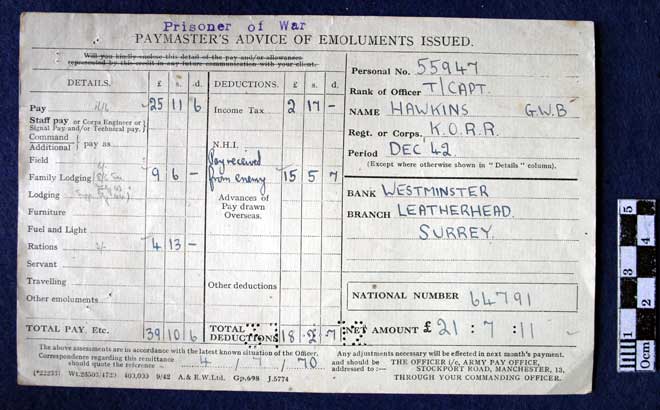 Prisoner of War
PAYMASTER'S ADVICE OF EMOLUMENTS ISSUED.
Will you kindly enclose this detail of the pay and/or allowances
represented by this credit in any future communication with your client.
DETAILS. £ s. d.
Pay 25 11 6
Staff pay or Corps Engineer or
Signal Pay and/or Technical pay.
Command
Additional pay as
Field
Family Lodging 9 6 -
Lodging
Furniture
Fuel and Light
Rations 4 13 -
Servant
Travelling
Other emoluments
TOTAL PAY, Etc. 39 10 6
DEDUCTIONS. £ s. d.
Income Tax 2 17 -
N.H.I.
Pay received
from enemy 15 5 7
Advances of
Pay drawn
Overseas.
Other deductions
TOTAL
DEDUCTIONS 18 2 7
Personal No. 55947
Rank of Officer T/CAPT.
NAME HAWKINS G.W.B
Regt. or Corps. K.O.R.R.
Period DEC' 42.
(Except where otherwise shown in "Details" column).
BANK WESTMINSTER
BRANCH LEATHERHEAD.
SURREY.
NATIONAL NUMBER 64791
NET AMOUNT £ 21 : 7 : 11
The above assessments are in accordance with the latest known situation of the Officer.
Correspondence regarding this remittance
should quote the reference 4 / 7 / 70
Any adjustments necessary will be effected in next month's payment.
and should be
addressed to :—
THE OFFICER i/c, ARMY PAY OFFICE,
STOCKPORT ROAD, MANCHESTER, 13,
THROUGH YOUR COMMANDING OFFICER.
400,000 9/42 A. & E.W.Ltd. Gp.698 J.5774
0cm 1 2 3 4 5